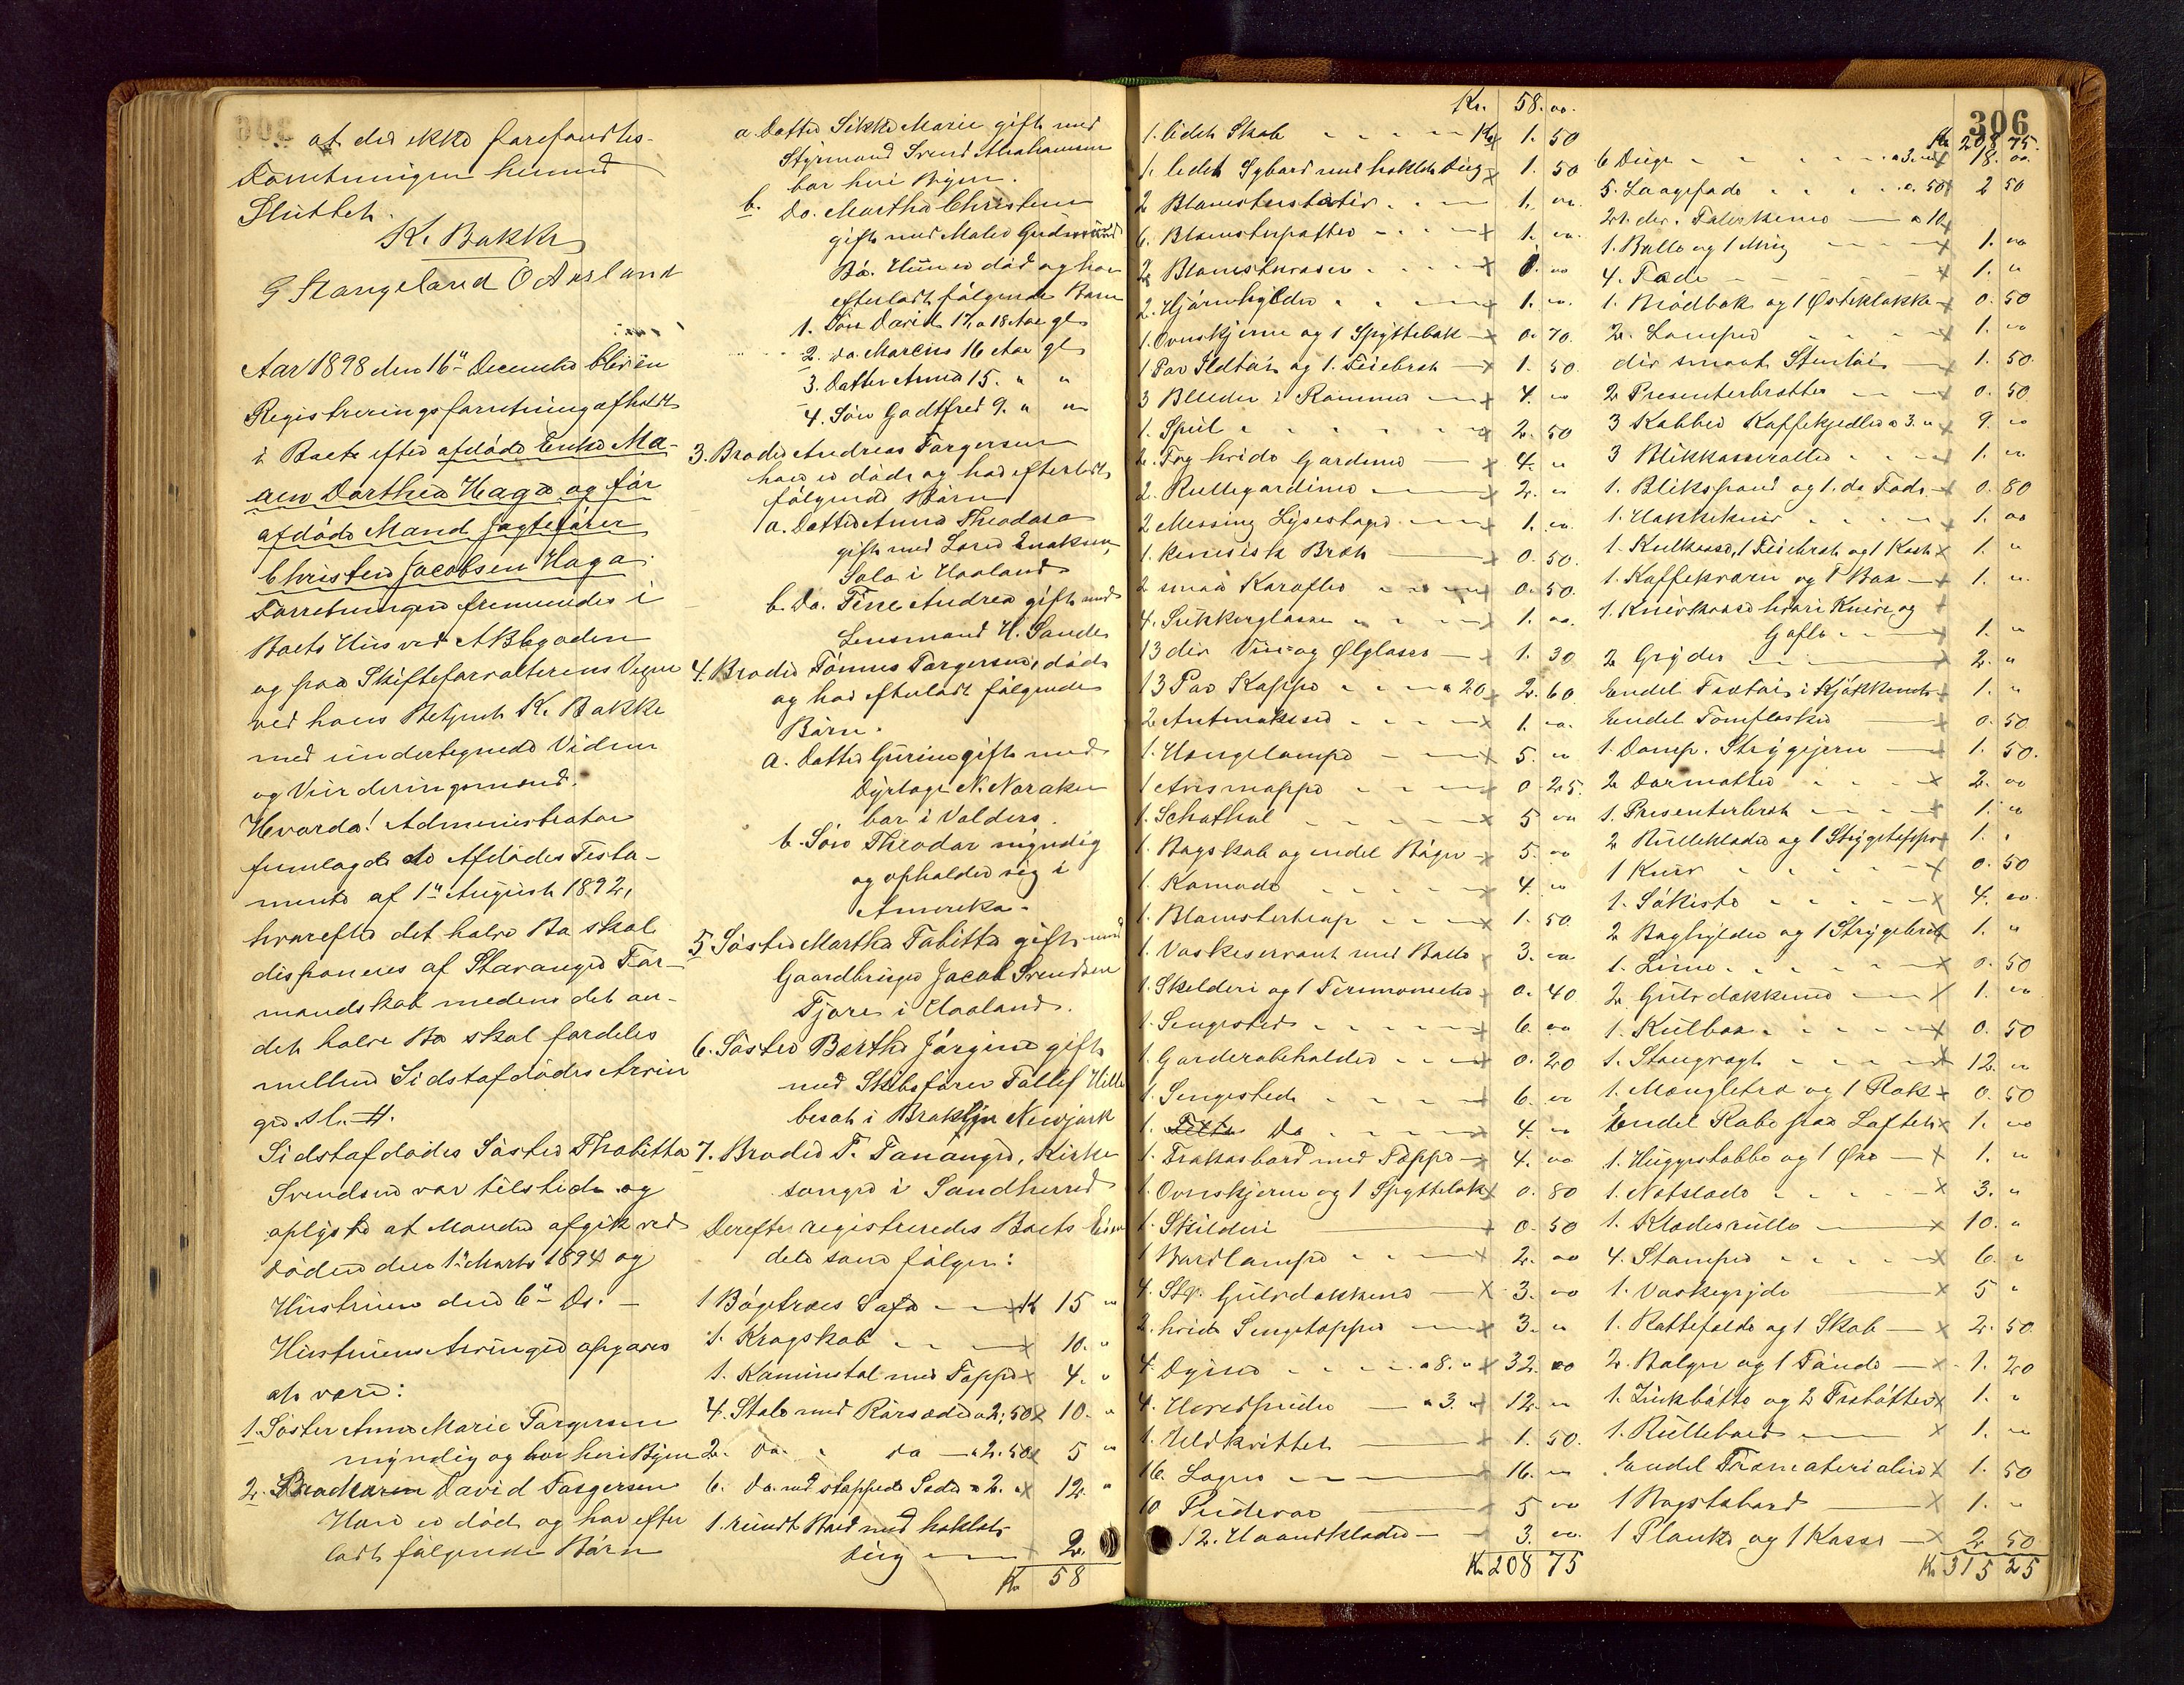 at der ikke forefandtes.
Forretningen hermed
Sluttet.
K. Bakke
G Stangeland O Aasland
Aar 1898 den 16de December blev en
Registreringsforretning afholdt
i Boet efter afdøde Enke Ma-
ren Dorthea Haga og før
afdøde Mand Jagtefører
Christen Jacobsen Haga.
Forretningen fremmedes i
Boets Hus ved ABbgaden
og paa Skifteforvalterens Vegne
ved hans Betjent K. Bakke
med undertegnede Vidner
og Vurderingsmænd.
Hvorda! Administrator
fremlagde de Afdødes Testa-
mente af 1ste August 1892,
hvorefter det halve Bo skal
disponeres af Stavanger For-
mandskab medens det an-
det halve Bo skal fordeles
mellem Sidstafdødes Arvin
ger.
Sidstafdødes Søster Thabitta
Svendsen var tilstede og
oplyste at Manden afgik ved
Døden den 1ste Marts 1894 og
Hustruen den 6te Ds. -
Hustruens Arvinger opgaves
at være:
1. Søster Anna Marie Torgersen
myndig og bor heri Byen
2. Broderen David Torgersen
Han er død og har efter
ladt følgende Børn
a. Datter Sikke Marie gift med
Styrmand Svend Abrahamsen
bor heri Byen.
b. Do. Martha Christine
gift med Maler Gudmund
Bø. Hun er død og har
efterladt følgende Børn
1. Søn David 17 a 18 Aar gl
2. do. Marcius 16 Aar gl
3. Datter Anna 15. " "
4. Søn Godtfred 9. " "
3. Broder Andreas Torgersen
han er døde og har efterladt
følgende Børn
a. Datter Anna Theodora
gift med Lars Enoksen,
Sola i Haaland
b. Do. Tine Andrea gift med
Lensmand H. Sande
4. Broder Tønnes Torgersen, død
og har efterladt følgende
Børn.
a. Datter Gurine gift med
Dyrlæge N. Noraker
bor i Valders.
b. Søn Theodor myndig
og opholder sig i
Amerika.
5. Søster Martha Tabitta gift med
Gaardbruger Jacob Svendsen
Tjore i Haaland.
6. Søster Berthe Jørgine gift
med Skibsfører Tollef Hille
besat i Broklyn Newjork
7. Broder T. Tananger, Kirke
sanger i Sandherred
Derefter registreredes Boets Eien
dele som følger:
1 Bøgetræes Sofa - - x K 15 "
1. Kragskab - - x 10. "
1. Kaminstol med Teppe x 4. "
4. Stole med Rørsæder a 2:50 x 10. "
2. do. " do - a 2.50 x 5 "
6. do. med stoppede Sæder a 2. " x 12. "
1. rundt Bord med heklet
Dug - x 2.
Kr 58
Kr. 58. oo.
1. lidet Skab - - - Kr x 1. 50
1. lidet Sybord med heklede Dug x 1. 50
2 Blomsterstativer . . - 1. oo.
6. Blomsterpotter - - - x 1. oo.
2 Blomstervaser . . . - x 0. oo
2. Hjørnehylder . . - x 1. oo.
1. Ovnskjerm og 1 Spyttebak - x 0. 70.
1 Par Ildtøi og 1. Feiebret - x 1. 50.
3 Billeder i Ramme - x 4. oo
1. Speil . . . . x 2. 50
2. Fag hvide Gardiner - x 4. "
2. Rullegardiner - x 2. "
2 Messing Lysestager - - 1. oo.
1. kinesisk Bret - 0. 50.
2 smaa Karafler - - x 0. 50.
4. Sukkerglasse - x 1. oo.
13 div Vin og Ølglasse - x 1. 30
13 Par Kopper - - a 20 x 2. 60
2 Antimakasser - - - x 1. oo.
1. Hængelampe - - x 5. "
1 Avismappe - - - x 0 25.
1. Schathol - - - x 5 oo
1. Bogskab og endel Bøger x 5. oo
1. Komode - - - x 4. oo
1. Blomstertrap - - - x 1. 50.
1. Vaskeservant med Balle x 3. oo
1. Skilderi og 1 Termometer x 0. 40
1. Sengested - - - x 6. oo
1. Garderobeholder - - x 0. 20
1. Sengested - - x 6. oo
1. Do - - - x 4. oo
1. Trækasbord med Teppe x 4. oo
1. Ovnskjerm og 1 Spyttebak x 0. 80
1. Skilderi - x 0. 50
1 Bordlampe - - - x 2. oo
4. Stk. Gulvdækkener - x 3. oo
2. hvide Sengetepper - - x 3. "
4. Dyner - - - a 8. " x 32. oo
4. Hovedpuder - a 3. " x 12. "
1. Uldkvittel - x 1. 50.
16. Lagner - - - x 16. "
10 Pudevar - 5 oo
12. Haandklæder - - 3. oo.
Kr 208 75
306
Kr 208 75.
6 Duge - - - - a 3. x 18. oo
5. Laagefade . . . . a. 50 x 2 50
21. div. Talerkener - a 10 x
1. Bolle og 1 Mug - - x 1. oo
4. Fade - - - x 1. "
1. Brødbak og 1 Osteklokke x 0. 50
2. Lamper - - - x 1. oo
div smaat Stentøi - x 1. 50.
2 Presenterbretter - - x 0. 50
3 Kobber Kaffekjedler a 3. " x 9. oo
3 Blikkasseroller - - x 1. oo
1. Blikspand og 1. do Fad - x 0. 80
1. Hakkekniv - - - x 1. oo
1. Kulkasse, 1 Feiebret og 1 Kost x 1. "
1. Kaffekværn og 1 Bøx - x 1. "
1. Knivkasse hvori Knive og
Gafle - - x 1. "
2 Gryder - x 2. "
Endel Trætøi i Kjøkkenet x 1. "
Endel Tomflasker - 0. 50
1. Damp. Strygejern - x 1. 50.
2 Dørmatter - - x 2. oo
1. Presenterbret - - x 1. "
2 Rulleklæder og 1 Strygeteppe x 1. "
1 Kurv - - x 0. 50
1. Søkiste - - - x 4. oo.
2 Baghylder og 1 Strygebret x 1. "
1. Line - - - x 0. 50
2 Gulvdækkener - x 1. oo
1. Kulbox - - - x 0. 50
1. Stangvægt - - - x 12. "
1. Mangletræ og 1 Stok x 0. 50
Endel Rabe paa Loftet x 1. oo
1. Huggestabbe og 1 Øxe - x 1. "
1. Notslade - - - x 3. "
1. Klædesrulle - x 10. "
4. Stamper - - - x 6. "
1. Vaskegryde - x 5 "
1. Rottefælde og 1 Skab - x 2. 50
2. Balger og 1 Tønde - x 1. 20
1. Zinkbøtte og 2 Træbøtter x 1. "
1. Rullebord - x 1. "
Endel Træmaterialier x 1. 50
1 Bagstebord - x 1. "
1 Planke og 1 Kasse - x 2 50
Kr 315 25